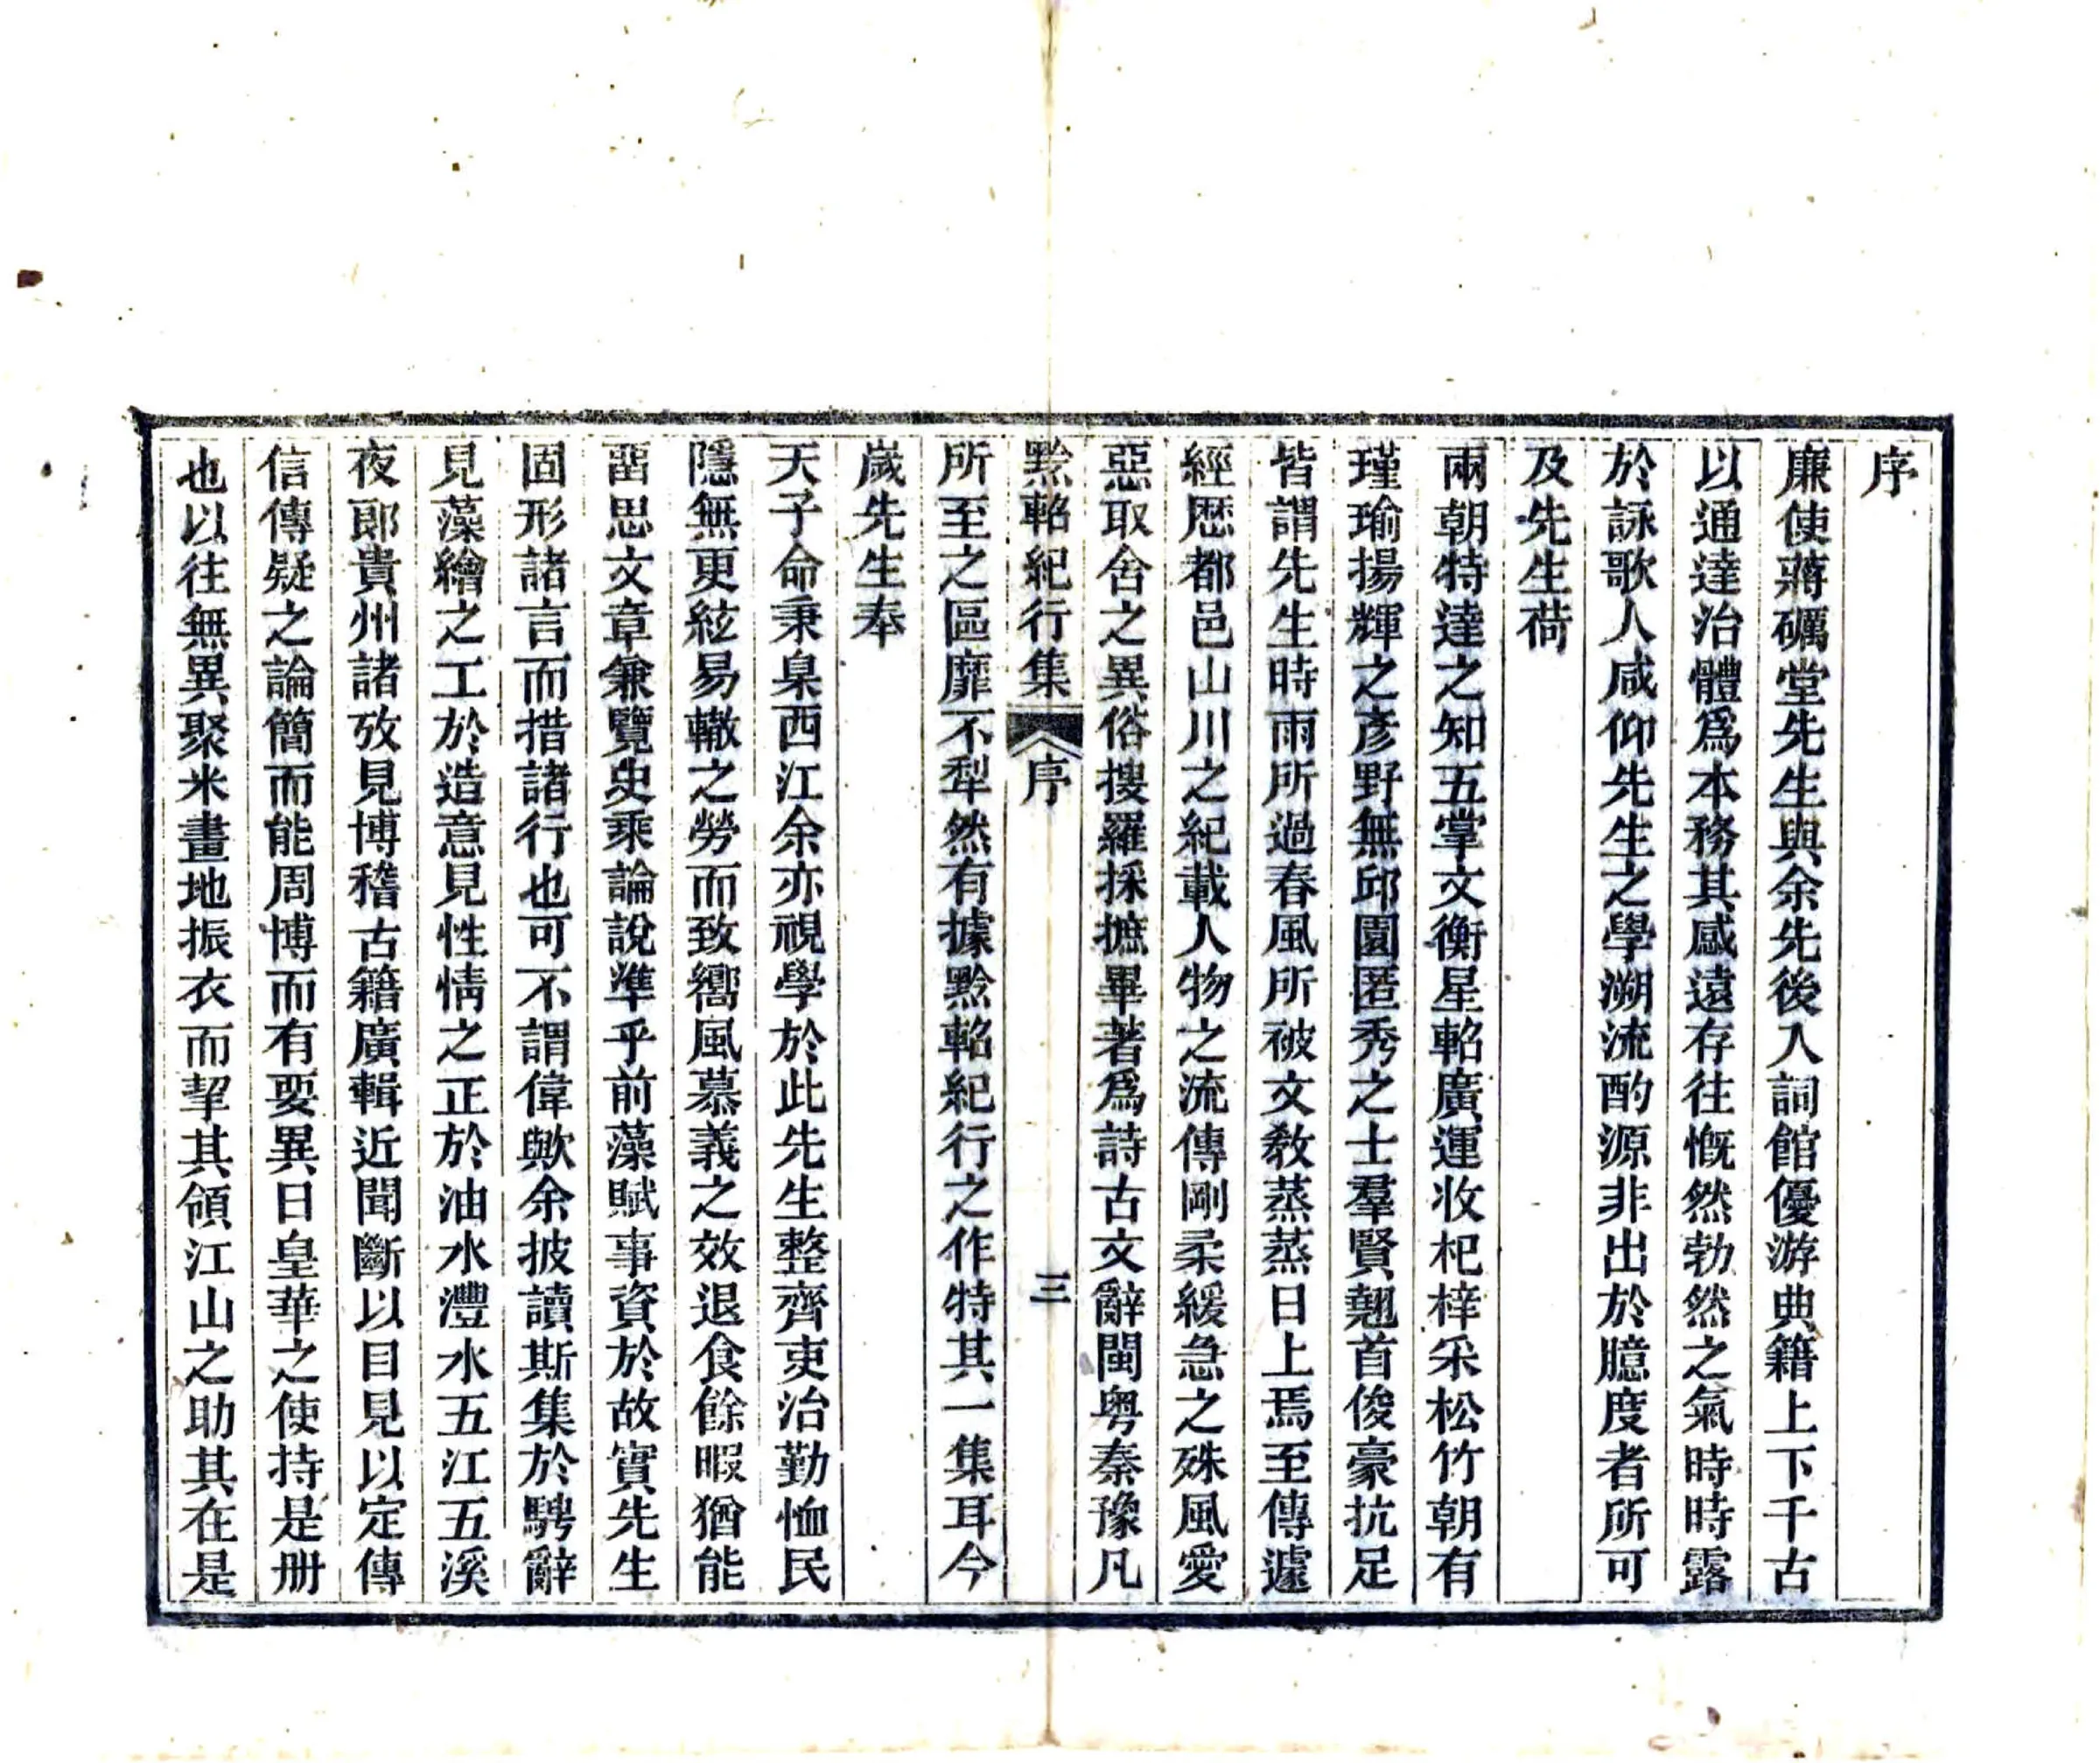 序
廉使蔣礪堂先生與余先後入詞館優游典籍上下千古
以通達治體爲本務其感遠存往慨然勃然之氣時時露
於詠歌人咸仰先生之學溯流酌源非出於臆度者所可
及先生荷
兩朝特達之知五掌文衡星軺廣運收杞梓采松竹朝有
瑾瑜揚輝之彥野無邱園匿秀之士羣賢翹首俊豪抗足
皆謂先生時雨所過春風所被文教蒸蒸日上焉至傳遽
經歷都邑山川之紀載人物之流傳剛柔緩急之殊風愛
惡取舍之異俗搜羅採摭畢著爲詩古文辭閩粤秦豫凡
黔軺紀行集
序
三
所至之區靡不犁然有據黔軺紀行之作特其一集耳今
歲先生奉
天子命秉臬西江余亦視學於此先生整齊吏治勤恤民
隱無更絃易轍之勞而致嚮風慕義之效退食餘暇猶能
畱思文章兼覽史乘論說準乎前藻賦事資於故實先生
固形諸言而措諸行也可不謂偉歟余披讀斯集於騁辭
見藻繪之工於造意見性情之正於油水灃水五江五溪
夜郎貴州諸攷見博稽古籍廣輯近聞斷以目見以定傳
信傳疑之論簡而能周博而有要異日皇華之使持是册
也以往無異聚米畫地振衣而挈其領江山之助其在是